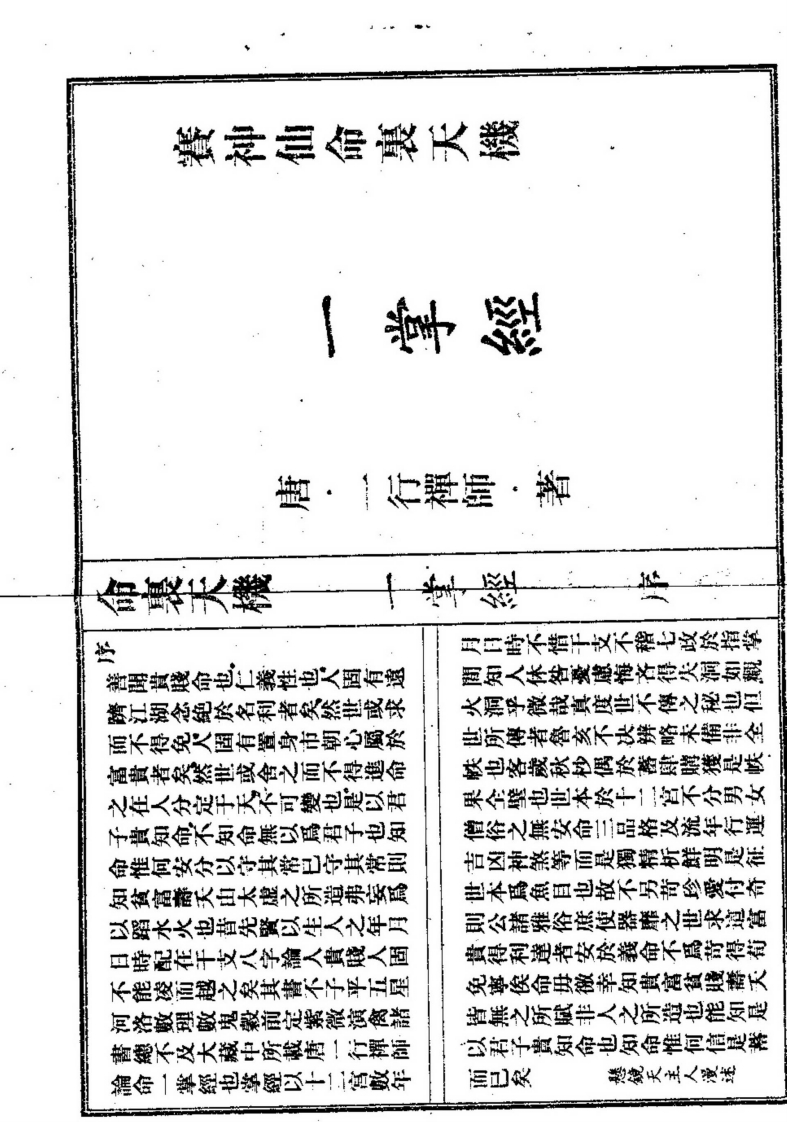 賽神仙命裏天機
一掌經
唐·一行禪師·著
命裏天機 一掌經 序
序
善聞貴賤命也仁義性也人固有遠
躋江湖念絕於名利者矣然世或求
而不得免人固有置身市朝心屬於
富貴者矣然世或舍之而不得進命
之在人分定于天不可變也是以君
子貴知命不知命無以為君子也知
命惟何安分以守其常已守其常則
知貧富壽夭由太虛之所造弗妄為
以蹈水火也昔先賢以生人之年月
日時配在干支八字論人貴賤人固
不能淩而越之矣其書不子平五星
河洛數理數鬼穀前定紫微演禽諸
書總不及大藏中所載唐一行禪師
論命一掌經也掌經以十二宮數年
月日時不惜干支不稽七政於指掌
間知人休咎憂慮悔吝得失洞如觀
火洞乎微哉真度世不傳之秘也但
世所傳者魯亥不決辨略未備非全
帙也客歲秋杪偶於蓄肆購獲是帙
果全璧也世本於十二宮不分男女
僧俗之無安命三品格及流年行運
吉凶神煞等而是獨精析鮮明是征
世本為魚目也故不另苛珍愛付奇
則公諸雅俗庶使器靡之世求這富
貴得利達者安於義命不為苛得荀
免寧俟命毋徼幸知貴富貧賤壽夭
皆無之所賦非人之所造也能知是
以君子貴知命也知命惟何信是蓄
而已矣 懸鏡天主人漫述